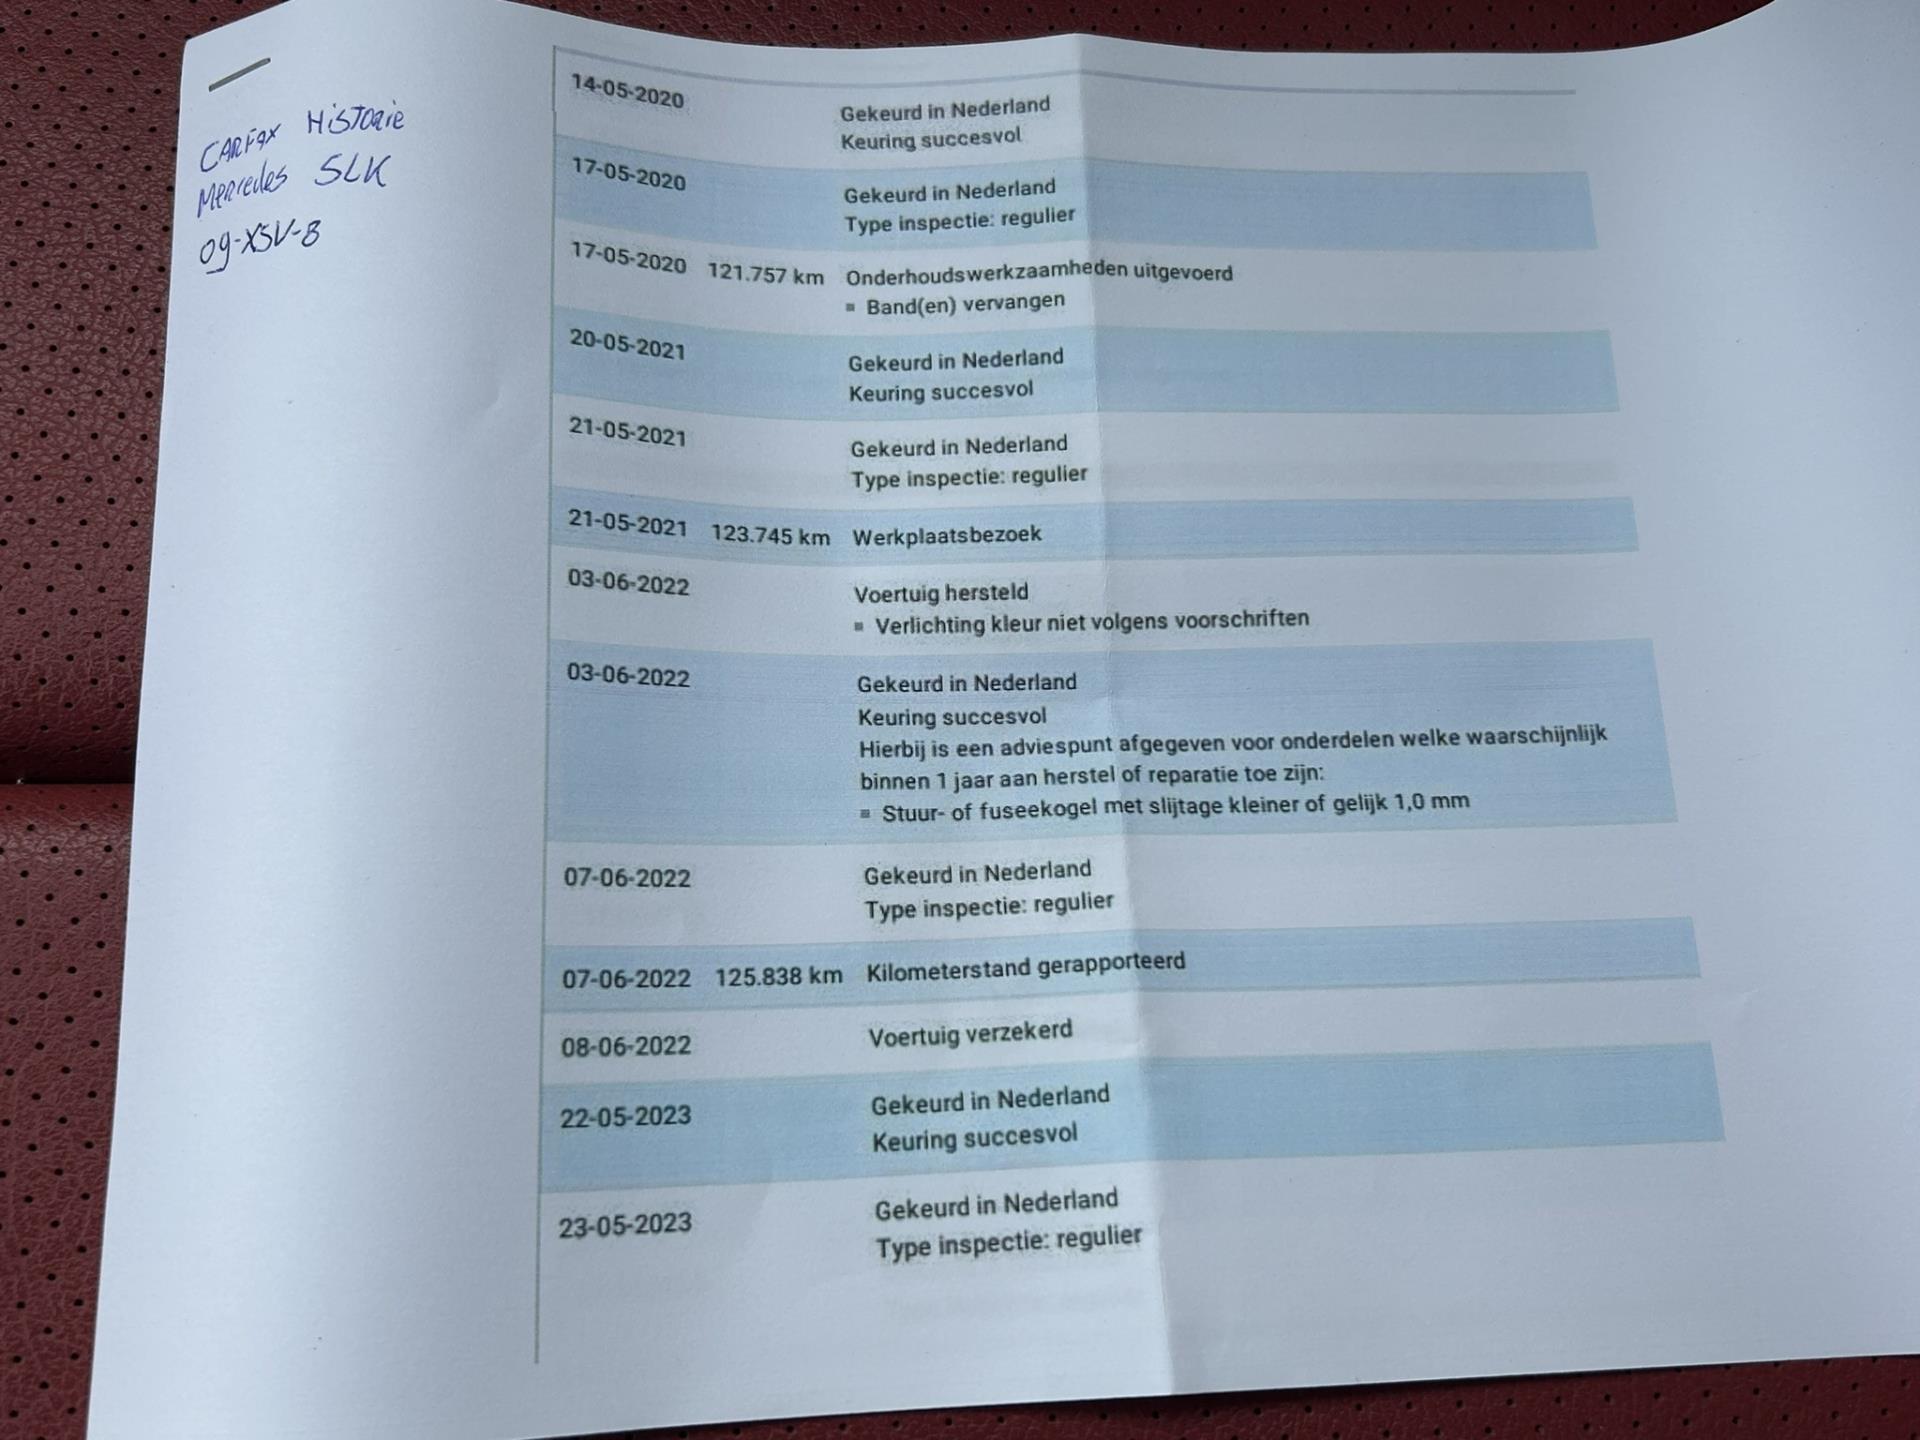 CARFax Historie
Mercedes SLK
09-XSV-8
14-05-2020
Gekeurd in Nederland
Keuring succesvol
17-05-2020
Gekeurd in Nederland
Type inspectie: regulier
17-05-2020 121.757 km Onderhoudswerkzaamheden uitgevoerd
▪ Band(en) vervangen
20-05-2021
Gekeurd in Nederland
Keuring succesvol
21-05-2021
Gekeurd in Nederland
Type inspectie: regulier
21-05-2021 123.745 km Werkplaatsbezoek
03-06-2022
Voertuig hersteld
▪ Verlichting kleur niet volgens voorschriften
03-06-2022
Gekeurd in Nederland
Keuring succesvol
Hierbij is een adviespunt afgegeven voor onderdelen welke waarschijnlijk
binnen 1 jaar aan herstel of reparatie toe zijn:
▪ Stuur- of fuseekogel met slijtage kleiner of gelijk 1,0 mm
07-06-2022
Gekeurd in Nederland
Type inspectie: regulier
07-06-2022 125.838 km Kilometerstand gerapporteerd
08-06-2022 Voertuig verzekerd
22-05-2023
Gekeurd in Nederland
Keuring succesvol
23-05-2023
Gekeurd in Nederland
Type inspectie: regulier